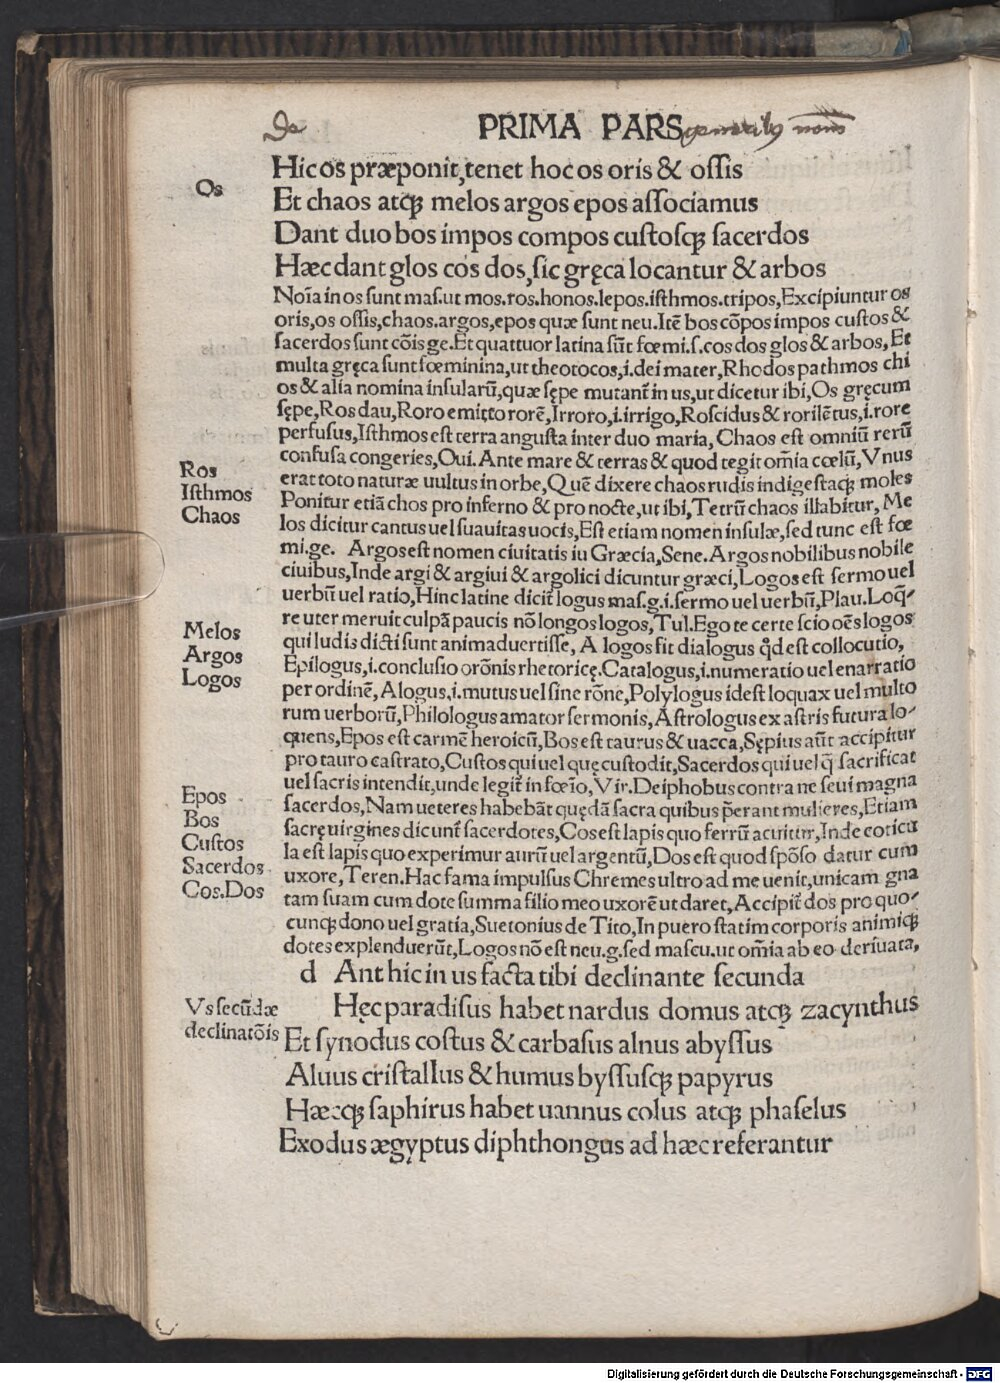 De PRIMA PARS generibus nominum
Os
Hic os præponit, tenet hoc os oris & ossis
Et chaos atq; melos argos epos associamus
Dant duo bos impos compos custosq; sacerdos
Hæc dant glos cos dos, sic gręca locantur & arbos
Noīa in os sunt mas. ut mos. ros. honos. lepos. isthmos. tripos, Excipiuntur os
oris, os ossis, chaos. argos, epos quæ sunt neu. Itē bos cōpos impos custos &
sacerdos sunt cōis ge. Et quattuor latina sūt fœmi. s. cos dos glos & arbos, Et
multa gręca sunt fœminina, ut theotocos, i. dei mater, Rhodos pathmos chi
os & alia nomina insularū, quæ sępe mutant̄ in us, ut dicetur ibi, Os gręcum
sępe, Ros dau, Roro emitto rorē, Irroro, i. irrigo, Roscidus & rorilētus, i. rore
perfusus, Isthmos est terra angusta inter duo maria, Chaos est omniū rerū
confusa congeries, Oui. Ante mare & terras & quod tegit om̄ia cœlū, Vnus
erat toto naturæ uultus in orbe, Quē dixere chaos rudis indigestaq; moles
Ponitur etiā chos pro inferno & pro nocte, ut ibi, Tetrū chaos illabitur, Me
los dicitur cantus uel suauitas uocis, Est etiam nomen insulæ, sed tunc est fœ
mi. ge. Argos est nomen ciuitatis iu Græcia, Sene. Argos nobilibus nobile
ciuibus, Inde argi & argiui & argolici dicuntur græci, Logos est sermo uel
uerbū uel ratio, Hinc latine dicit̄ logus mas. g. i. sermo uel uerbū, Plau. Loq̄-
re uter meruit culpā paucis nō longos logos, Tul. Ego te certe scio oēs logos
qui ludis dicti sunt animaduertisse, A logos fit dialogus q̇d est collocutio,
Epilogus, i. conclusio orōnis rhetoricę. Catalogus, i. numeratio uel enarratio
per ordinē, Alogus, i. mutus uel sine rōne, Polylogus idest loquax uel multo
rum uerborū, Philologus amator sermonis, Astrologus ex astris futura lo-
quens, Epos est carmē heroicū, Bos est taurus & uacca, Sępius aūt accipitur
pro tauro castrato, Custos qui uel quę custodit, Sacerdos qui uel q̄ sacrificat
uel sacris intendit, unde legit̄ in fœīo, Vir. Deiphobus contra ne seui magna
sacerdos, Nam ueteres habebāt quędā sacra quibus p̄erant mulieres, Etiam
sacrę uirgines dicunt̄ sacerdotes, Cos est lapis quo ferrū acuitur, Inde coticu
la est lapis quo experimur aurū uel argentū, Dos est quod spōso datur cum
uxore, Teren. Hac fama impulsus Chremes ultro ad me uenit, unicam gna
tam suam cum dote summa filio meo uxorē ut daret, Accipit̄ dos pro quo-
cunq; dono uel gratia, Suetonius de Tito, In puero statim corporis animiq;
dotes explenduerūt, Logos nō est neu. g. sed mascu. ut om̄ia ab eo deriuata,
Ros
Isthmos
Chaos
Melos
Argos
Logos
Epos
Bos
Custos
Sacerdos
Cos. Dos
d Ant hic in us facta tibi declinante secunda
Hęc paradisus habet nardus domus atq; zacynthus
Et synodus costus & carbasus alnus abyssus
Aluus cristallus & humus byssusq; papyrus
Hæcq; saphirus habet uannus colus atq; phaselus
Exodus ægyptus diphthongus ad hæc referantur
Vs secūdæ
declinatōis
Digitalisierung gefördert durch die Deutsche Forschungsgemeinschaft - DFG